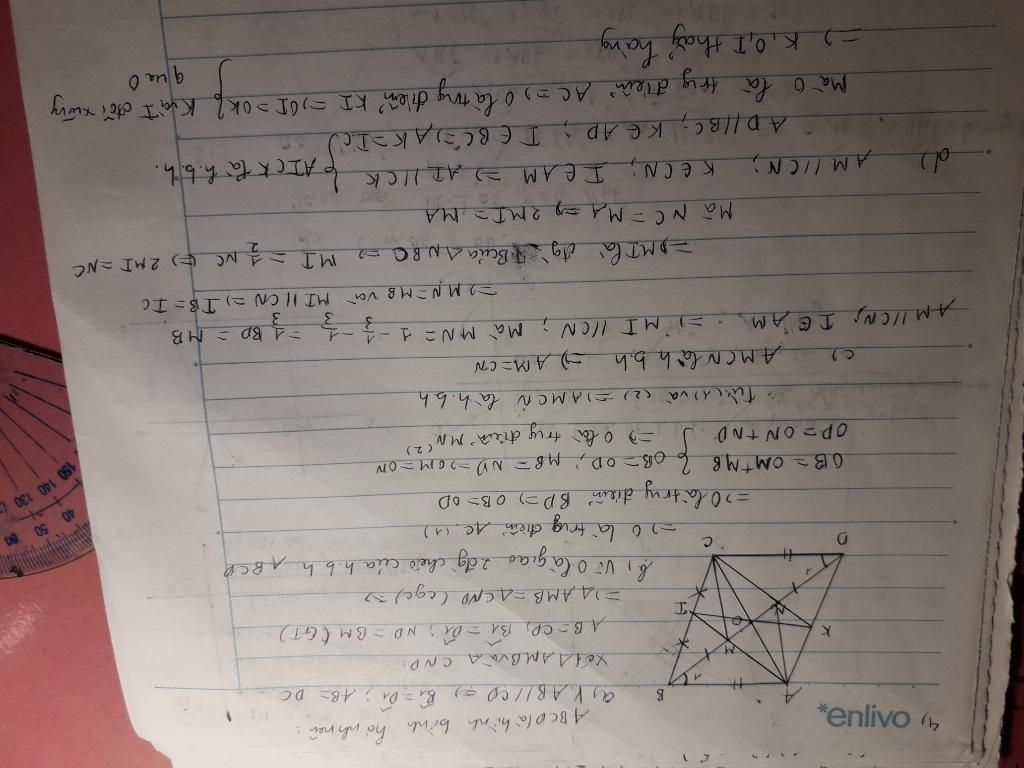 *enlivo
4)
ABCD là hình bình hành nên:
a) Vì AB//CD => B̂1=D̂1; AB=DC
xét ΔAMB và Δ CND:
AB=CD, B̂1=D̂1; ND=BM (GT)
=> Δ AMB = Δ CND (cgc) =>
b, Vì O là giao 2 đg chéo của h.b.h ABCD
=> O là trug điểm AC. (1)
=> O là trug điểm BD => OB=OD
OB = OM+MB } OB=OD; MB=ND => OM=ON
OD=ON+ND. => O là trug điểm MN (2)
Từ (1) và (2) => AMCN là h.b.h
c) AMCN là h.b.h => AM=CN
AM//CN; I∈AM. => MI//CN; Mà MN = 1-1/3-1/3 = 1/3 BD = MB
=> MN=MB và MI//CN => IB=IC
=> MI là đg TB của Δ NBC => MI = 1/2 NC <=> 2MI=NC
Mà NC=MA => 2MI=MA
d) AM//CN; K∈CN; I∈AM => AI//CK } AICK là h.b.h.
AD//BC; K∈AD; I∈BC => AK=IC
Mà O là trug điểm AC => O là trug điểm KI => OI=OK } K và I đối xứng
=> K,O,I thẳng hàng
qua O
A
B
C
D
I
K
M
N
O
1
1